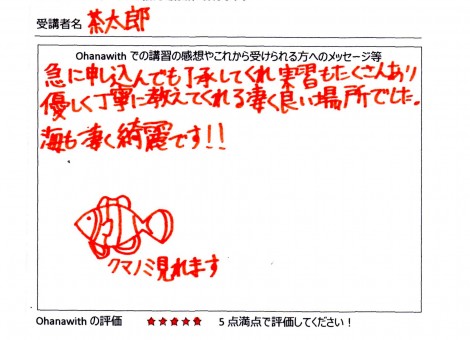 受講者名 茶太郎
Ohanawith での講習の感想やこれから受けられる方へのメッセージ等
急に申し込んでも了承してくれ実習もたくさんあり
優しく丁寧に教えてくれる凄く良い場所でした。
海も凄く綺麗です!!
クマノミ見れます
Ohanawith の評価 ★★★★★ 5点満点で評価してください!